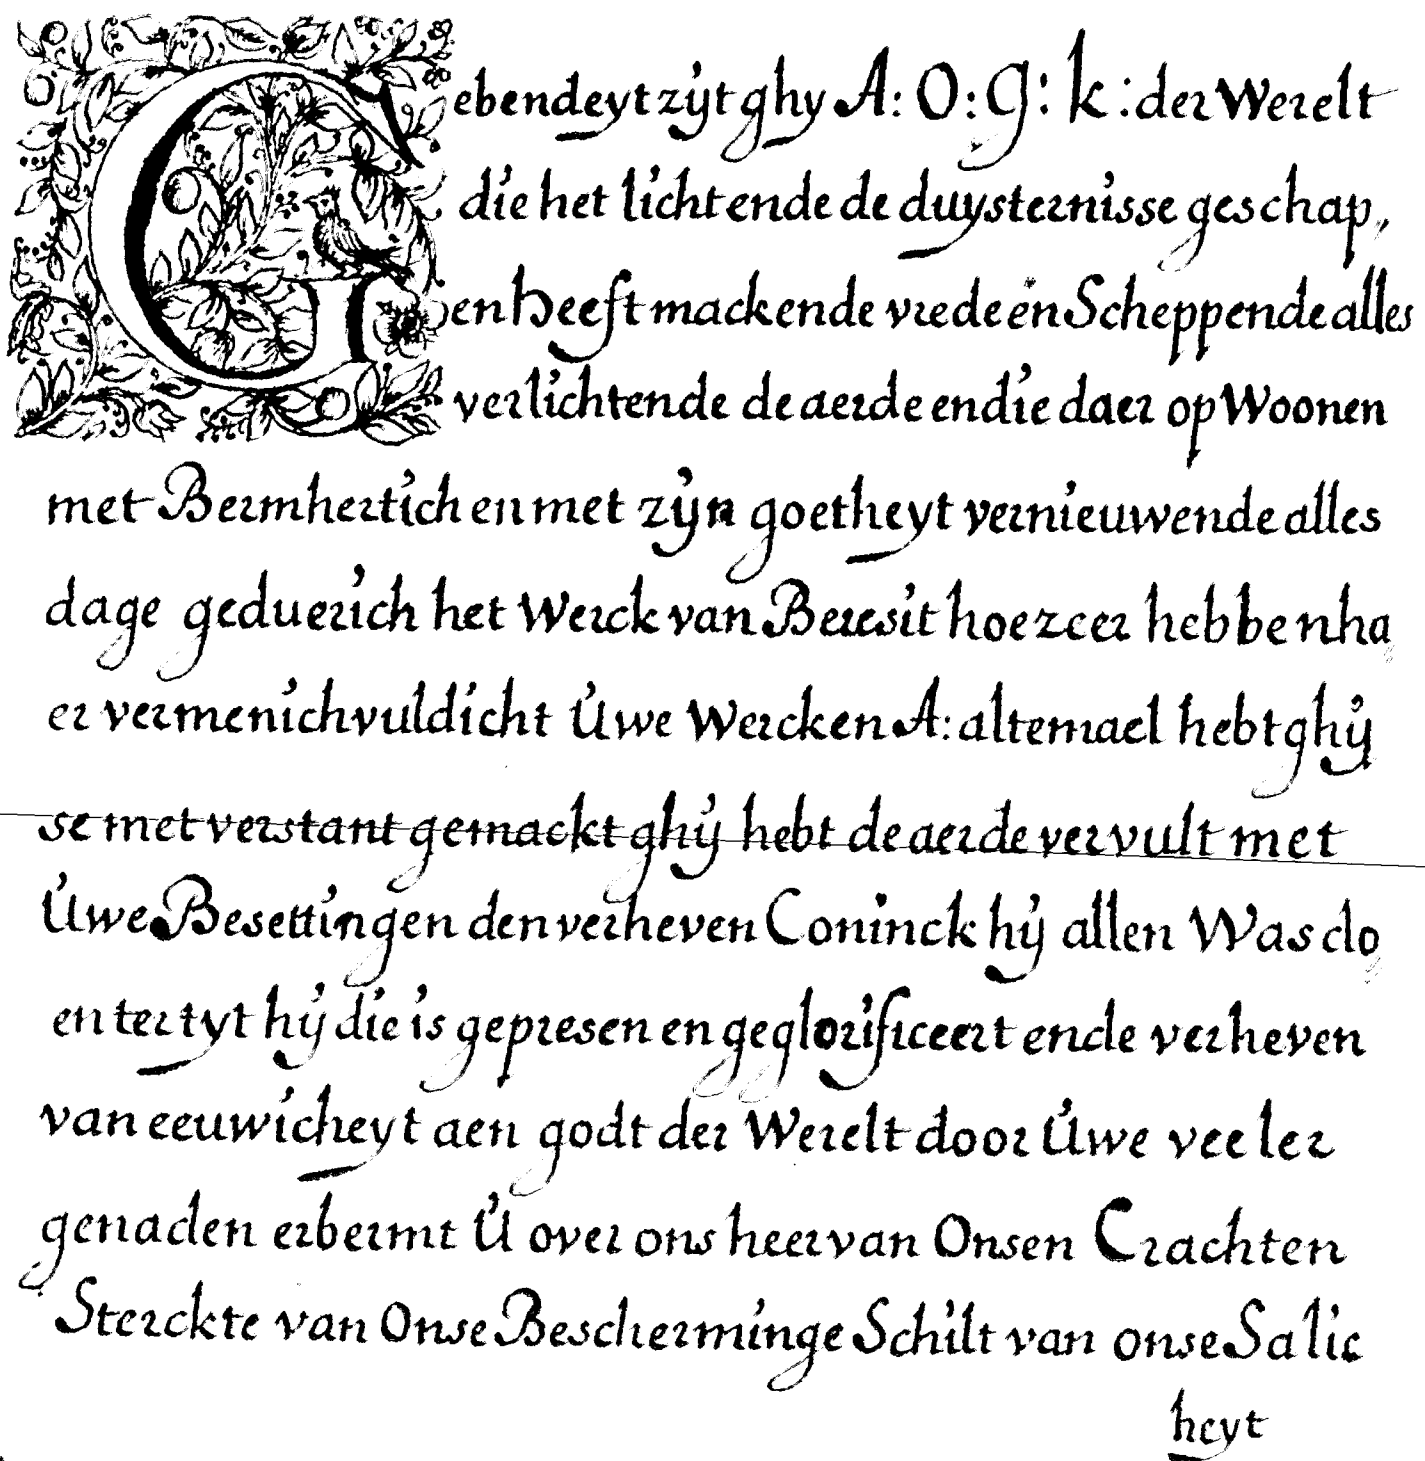 Gebendeyt zÿt ghy A: O: G: k: der Werelt
die het licht ende de duysternisse geschap,
en heeft mackende vrede en Scheppende alles
verlichtende de aerde en die daer op Woonen
met Bermhertich en met zÿn goetheyt vernieuwende alles
dage geduerich het Werck van Beresit hoe zeer hebben ha
er vermenichvuldicht Uwe Wercken A: altemael hebt ghÿ
se met verstant gemackt ghÿ hebt de aerde vervult met
Uwe Besettingen den verheven Coninck hÿ allen Was do
en ter tyt hÿ die is gepresen en geglorificeert ende verheven
van eeuwicheyt aen godt der Werelt door Uwe veeler
genaden erbermt U over ons heer van Onsen Crachten
Sterckte van Onse Bescherminge Schilt van onse Salic
heyt